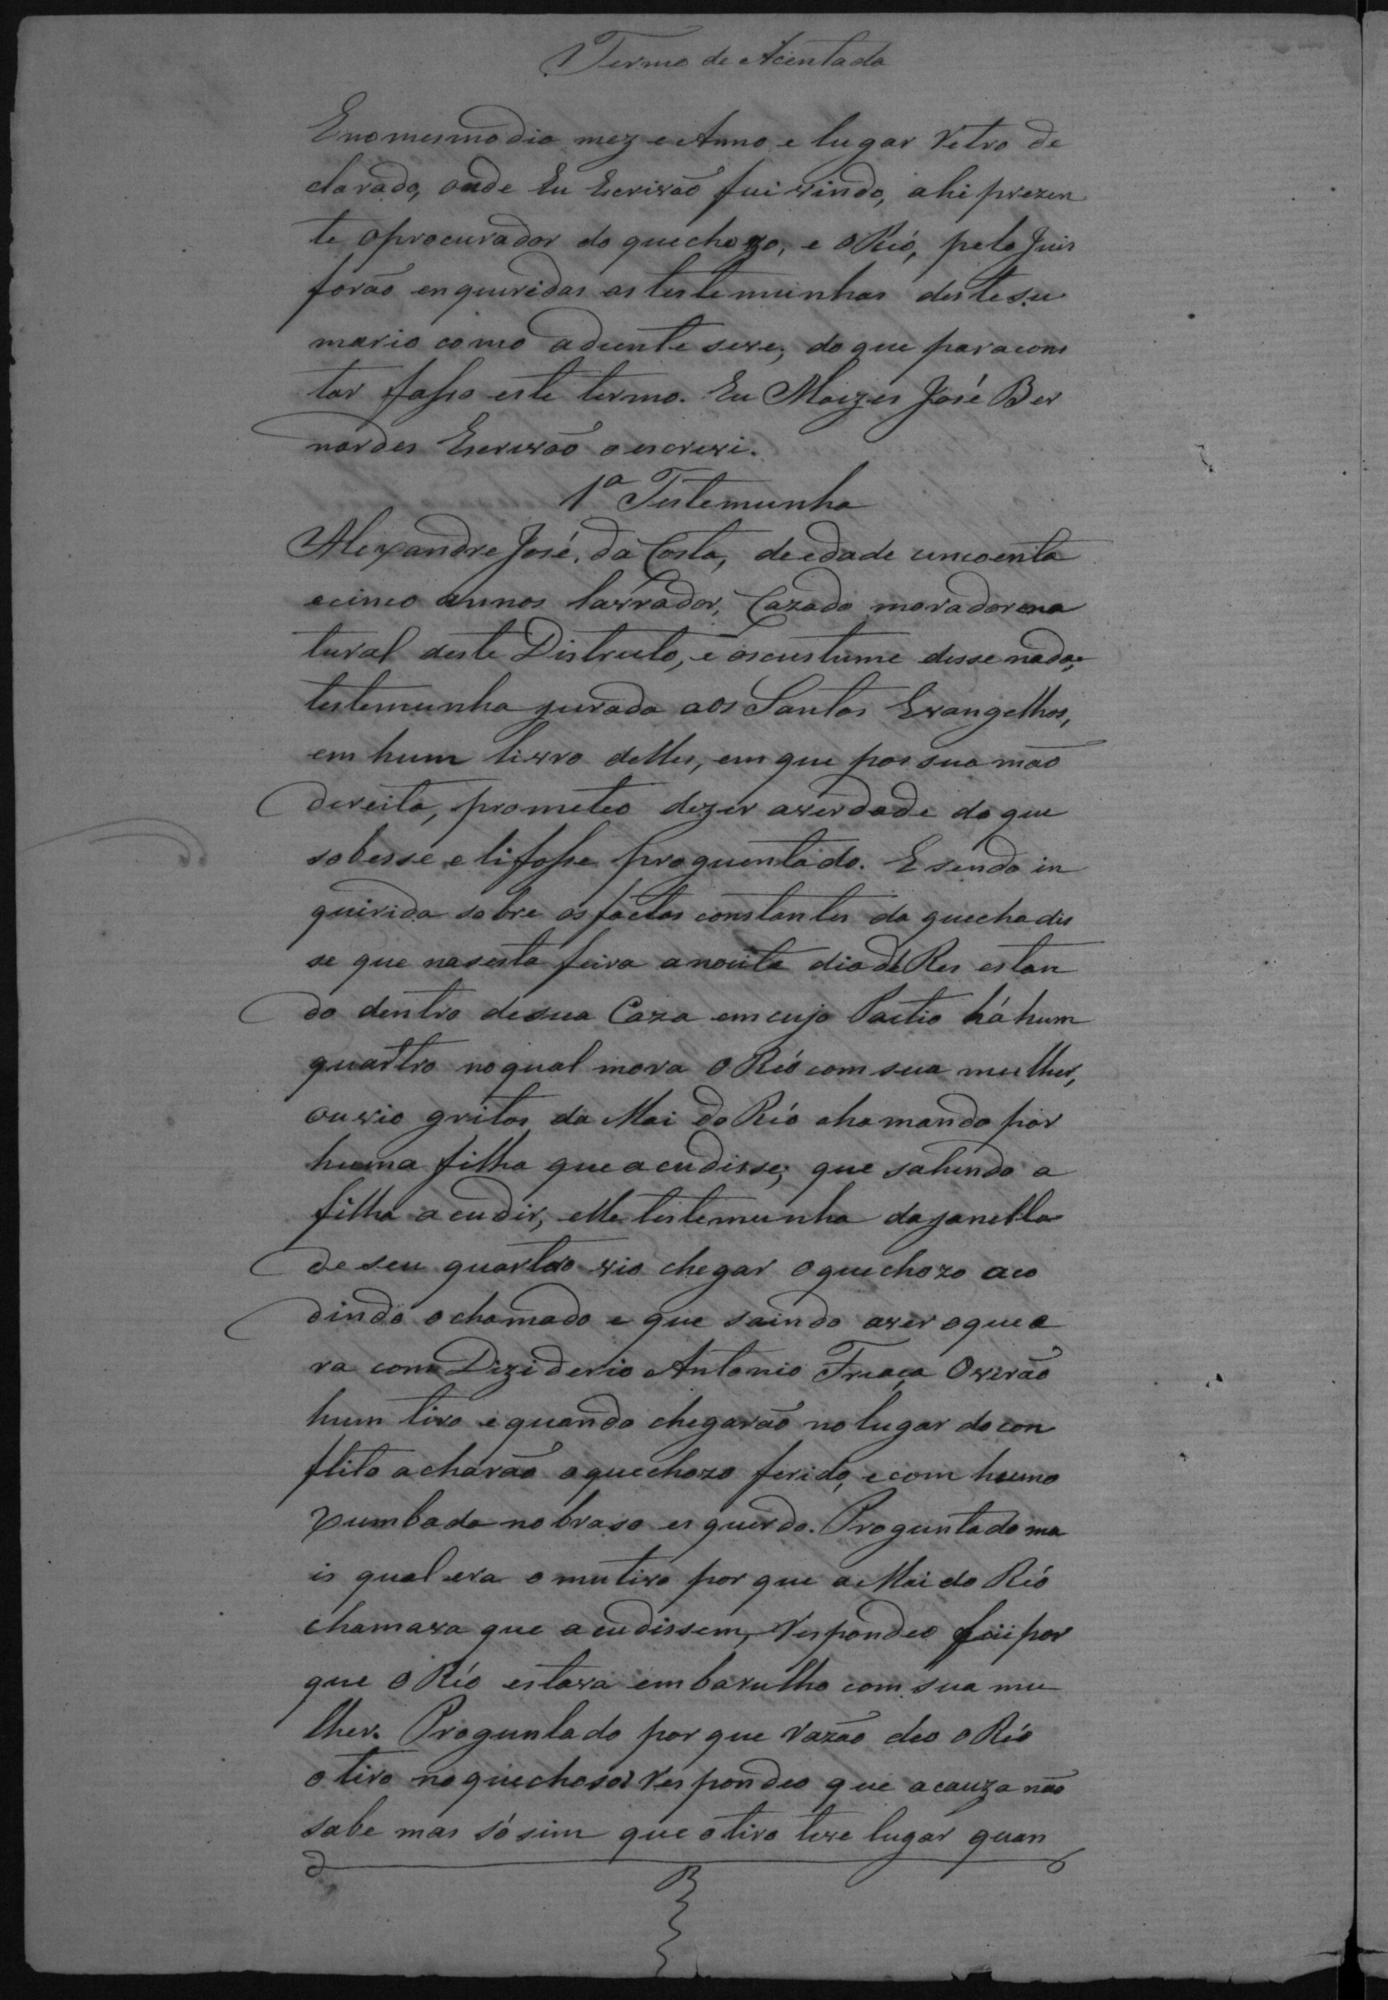 Termo de Acentada
E no mesmo dia mez e Anno e lugar retro de
clarado, onde Eu Escrivão fui vindo, ahi prezen
te o procurador do quechozo, e o Rió, pelo Juis
forão enqueridas as testemunhas deste su
mario como adiente se ve, do que para cons
tar fasso este termo. Eu Moizes José Ber
nardes Escrivão o escrevi.
1ª Testemunha
Alexandre José da Costa, de edade cincoenta
e cinco annos lavrador, Cazado morador e na
tural deste Distructo, e os custume disse nada,
testemunha jurada aos Santos Evangelhos,
em hum livro delles, em que pos sua mão
dereita, prometeo dizer a verdade do que
sobesse e li fosse proguentado. E sendo in
quirida sobre os factos constantes da quecha dis
se que na sesta feira a nouite dia de Res estan
do dentro de sua Caza em cujo Pactio há hum
quartro no qual mora o Rió com sua mulher,
ouvio gritos da Mai do Rió chamando por
huma filha que acudisse; que sahindo a
filha acudir, elle testemunha da janella
de seu quartro vio chegar o quechozo aco
dindo o chamado e que saindo a ver o que e
ra com Diziderio Antonio Friaça Ovirão
hum tiro e quando chegarão no lugar do con
flito acharão o quechozo ferido, e com huma
xumbada no braso esquerdo. Proguntado ma
is qual era o mutivo por que a Mai do Rió
chamava que acudissem, respondeo fui por
que o Rio estava em barulho com sua mu
lher. Proguntado por que razão deo o Rió
o tiro no quechoso? respondeo que a cauza não
sabe mas só sim que o tiro teve lugar quan